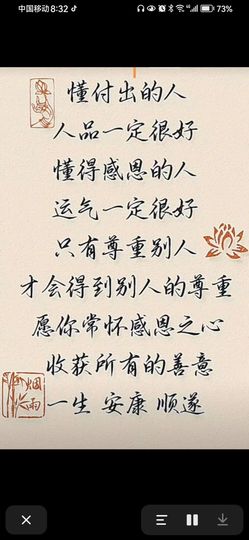 中国移动 8:32
73%
懂付出的人
人品一定很好
懂得感恩的人
运气一定很好
只有尊重别人
才会得到别人的尊重
愿你常怀感恩之心
收获所有的善意
一生 安康 顺遂
烟雨